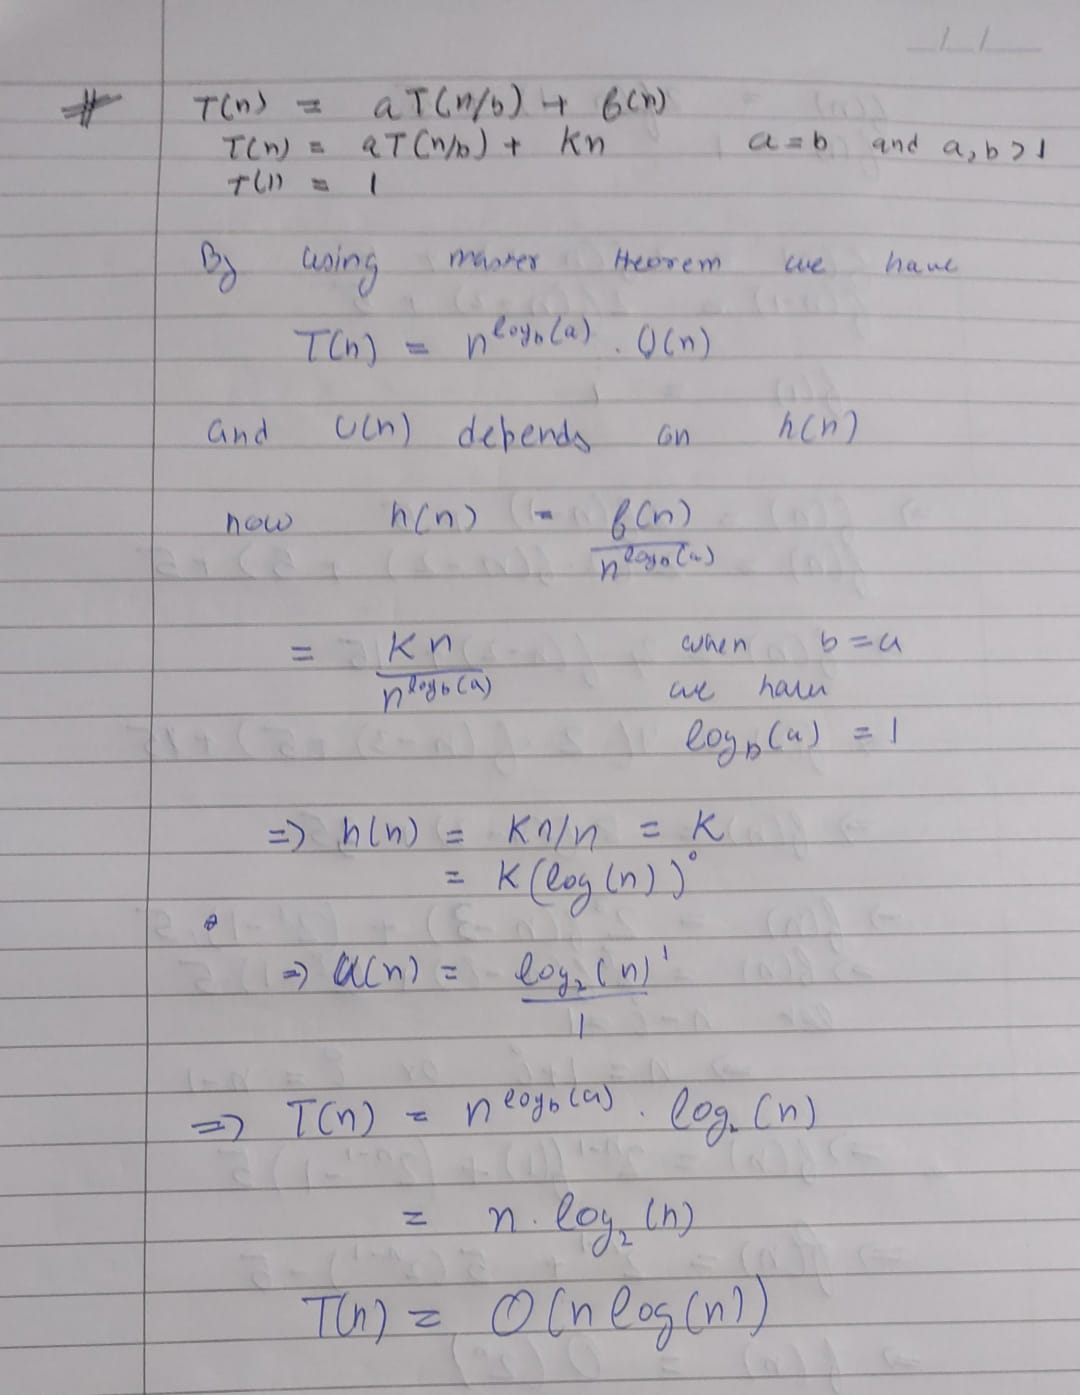 # T(n) = aT(n/b) + f(n)
T(n) = aT(n/b) + Kn a=b and a,b>1
T(1) = 1
By using master theorem we have
T(n) = n^log_b(a) . U(n)
and U(n) depends on h(n)
now h(n) = f(n)
n^log_b(a)
= Kn when b=a
n^log_b(a) we have
log_b(a) = 1
=> h(n) = Kn/n = K
= K(log(n))^0
=> U(n) = log_2(n)^1
1
=> T(n) = n^log_b(a) . log_2(n)
= n. log_2(n)
T(n) = O(n log(n))